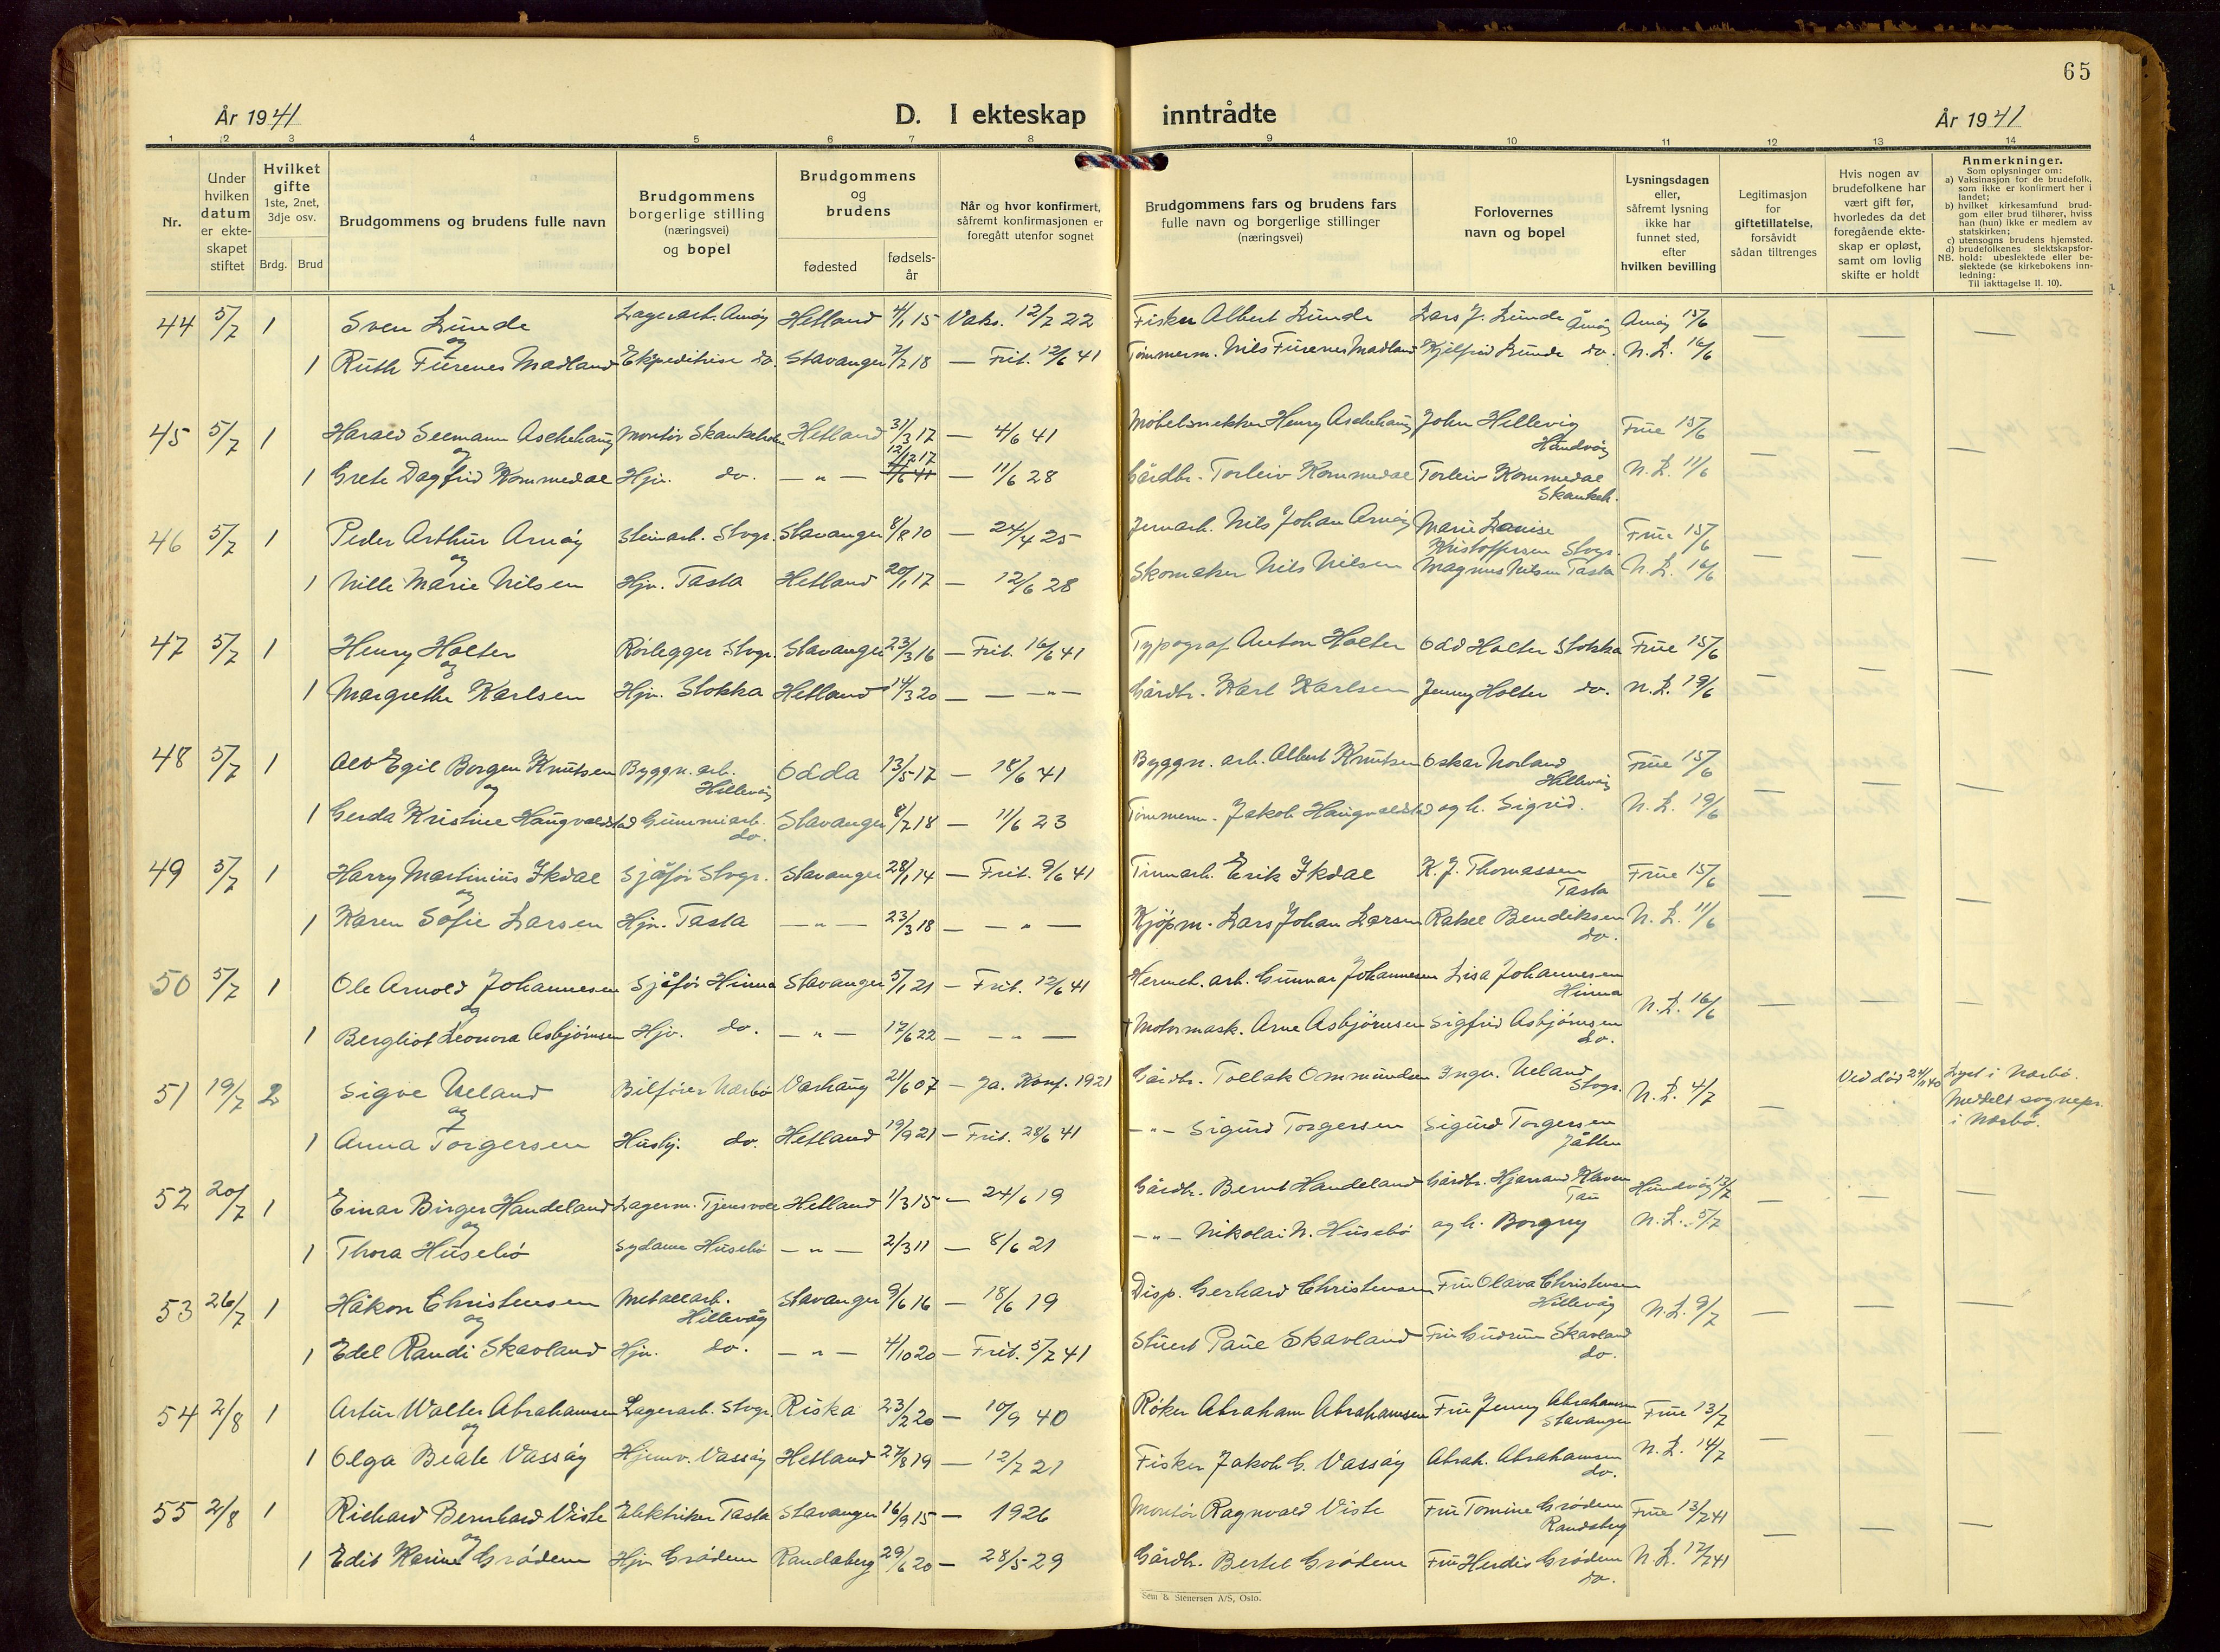 65
År 1941
D. I ekteskap
inntrådte
År 1941
1 2 3 4 5 6 7 8 9 10 11 12 13 14
Nr.
Under hvilken datum er ekteskapet stiftet
Hvilket gifte 1ste, 2net, 3dje osv.
Brdg. Brud
Brudgommens og brudens fulle navn
Brudgommens borgerlige stilling (næringsvei) og bopel
Brudgommens og brudens
fødested
fødselsår
Når og hvor konfirmert, såfremt konfirmasjonen er foregått utenfor sognet
Brudgommens fars og brudens fars fulle navn og borgerlige stillinger (næringsvei)
Forlovernes navn og bopel
Lysningsdagen eller, såfremt lysning ikke har funnet sted, efter hvilken bevilling
Legitimasjon for giftetillatelse, forsåvidt sådan tiltrenges
Hvis nogen av brudefolkene har vært gift før, hvorledes da det foregående ekteskap er opløst, samt om lovlig skifte er holdt
Anmerkninger.
Som oplysninger om:
a) Vaksinasjon for de brudefolk, som ikke er konfirmert her i landet;
b) hvilket kirkesamfund brudgom eller brud tilhører, hviss han (hun) ikke er medlem av statskirken;
c) utensogns brudens hjemsted.
d) brudefolkenes slektskapsforhold: ubeslektede eller beslektede (se kirkebokens innledning:
NB.
Til iakttagelse II. 10).
44 5/7 1 Sven Lunde Lagerarb. Amøy Hetland 4/1 15 Vaks. 12/7 22 Fisker Albert Lunde Lars J. Lunde Amøy Amøy 15/6 — — —
og
1 Ruth Furenes Madland Ekspeditrise do. Stavanger 7/7 18 — Frit. 12/6 41 Tømmerm. Nils Furenes Madland Kjelfrid Lunde do. N.L. 16/6
45 5/7 1 Harald Seemann Aschehaug Montør Skankeholm Hetland 31/3 17 — 4/6 41 Møbelsnekker Henry Aschehaug John Hellevig Hundvåg Frue 15/6
og
1 Grete Dagfrid Kommedal Hjv. do. — " — 12/12 17 — 11/6 28 Gårdbr. Torleiv Kommedal Torleiv Kommedal Skankeh. N.L. 11/6 — — —
46 5/7 1 Peder Arthur Amøy Steinarb. Stvgr. Stavanger 8/8 10 — 24/4 25 Jernarb. Nils Johan Amøy Marie Louise Kristoffersen Stvgr. Frue 15/6
og
1 Nille Marie Nilsen Hjv. Tasta Hetland 20/1 17 — 12/6 28 Skomaker Nils Nilsen Magnus Nilsen Tasta N.L. 16/6 — — —
47 5/7 1 Henry Holter Rørlegger Stvgr. Stavanger 23/3 16 — Frit. 16/6 41 Typograf Anton Holter Odd Holter Stokka Frue 15/6
og
1 Margrethe Karlsen Hjv. Stokka Hetland 14/3 20 — — — " — Gårdbr. Karl Karlsen Jenny Holter do. N.L. 19/6 — — —
48 5/7 1 Alv Egil Borgen Knutsen Byggn. arb. Hillevåg Odda 13/5 17 — 18/6 41 Byggn. arb. Albert Knutsen Oskar Norland Hillevåg Frue 15/6
og
1 Gerda Kristine Haugvaldstad Gummiarb. do. Stavanger 8/7 18 — 11/6 23 Tømmerm. Jakob Haugvaldstad og h. Sigrid. N.L. 19/6 — — —
49 5/7 1 Harry Martinius Ikdal Sjåfør Stvgr. Stavanger 28/1 14 — Frit. 9/6 41 Tinnarb. Erik Ikdal K. J. Thomassen Tasta Frue 15/6
og
1 Karen Sofie Larsen Hjv. Tasta — " — 23/3 18 — — " — Kjøpm. Lars Johan Larsen Rakel Bendiksen do. N.L. 11/6 — — —
50 5/7 1 Ole Arnold Johannesen Sjåfør Hinna Stavanger 5/1 21 — Frit. 12/6 41 Hermet. arb. Gunnar Johannesen Lisa Johannesen Hinna
og
1 Bergliot Leonora Asbjørnsen Hjv. do. — " — 17/6 22 — — " — † Motormask. Arne Asbjørnsen Sigfrid Asbjørnsen do. N.L. 16/6 — — —
51 19/7 2 Sigve Ueland Bilfører Nærbø Varhaug 21/6 07 — Ja. Konf. 1921 Gårdbr. Tollak Ommundsen Ingv. Ueland Stvgr. N.L. 4/7 — Ved død 24/11 40 Lyst i Nærbø. Meddelt sognepr. i Nærbø.
og
1 Anna Torgersen Husbj. do. Hetland 19/9 21 — Frit. 28/6 41 — " — Sigurd Torgersen Sigurd Torgersen Jåtten
52 20/7 1 Einar Birger Handeland Lagerm. Tjensvoll Hetland 1/3 15 — 24/6 19 Gårdbr. Bernt Handeland Gårdbr. Hjarrand Tau Hundvåg 13/7
og
1 Thora Husebø Sydame Husebø — " — 2/3 11 — 8/6 21 — " — Nikolai N. Husebø og h. Borgny N.L. 5/7 — — —
53 26/7 1 Håkon Christensen Metallarb. Hillevåg Stavanger 9/6 16 — 18/6 19 Disp. Gerhard Christensen Fru Olava Christensen Hillevåg N.L. 9/7 — — —
og
1 Edel Randi Skavland Hjv. do. — " — 4/10 20 — Frit. 5/7 41 Stuert Paul Skavland Fru Gudrun Skavland do.
54 2/8 1 Artur Walter Abrahamsen Lagerarb. Stvgr. Riska 23/2 20 — 10/9 40 Røker Abraham Abrahamsen Fru Jenny Abrahamsen Stavanger Frue 13/7
og
1 Olga Beate Vassøy Hjemv. Vassøy Hetland 27/8 19 — 12/7 21 Fisker Jakob G. Vassøy Abrah. Abrahamsen do. N.L. 14/7 — — —
55 2/8 1 Richard Bernhard Viste Elektriker Tasta Stavanger 16/9 15 — 1926 Montør Ragnvald Viste Fru Tomine Grødem Randaberg Frue 13/7 41
og
1 Edit Karine Grødem Hjv Grødem Randaberg 29/6 20 — 28/5 29 Gårdbr. Bertel Grødem Fru Herdis Grødem do. N.L. 12/7 41 — — —
Sem & Stenersen A/S, Oslo.